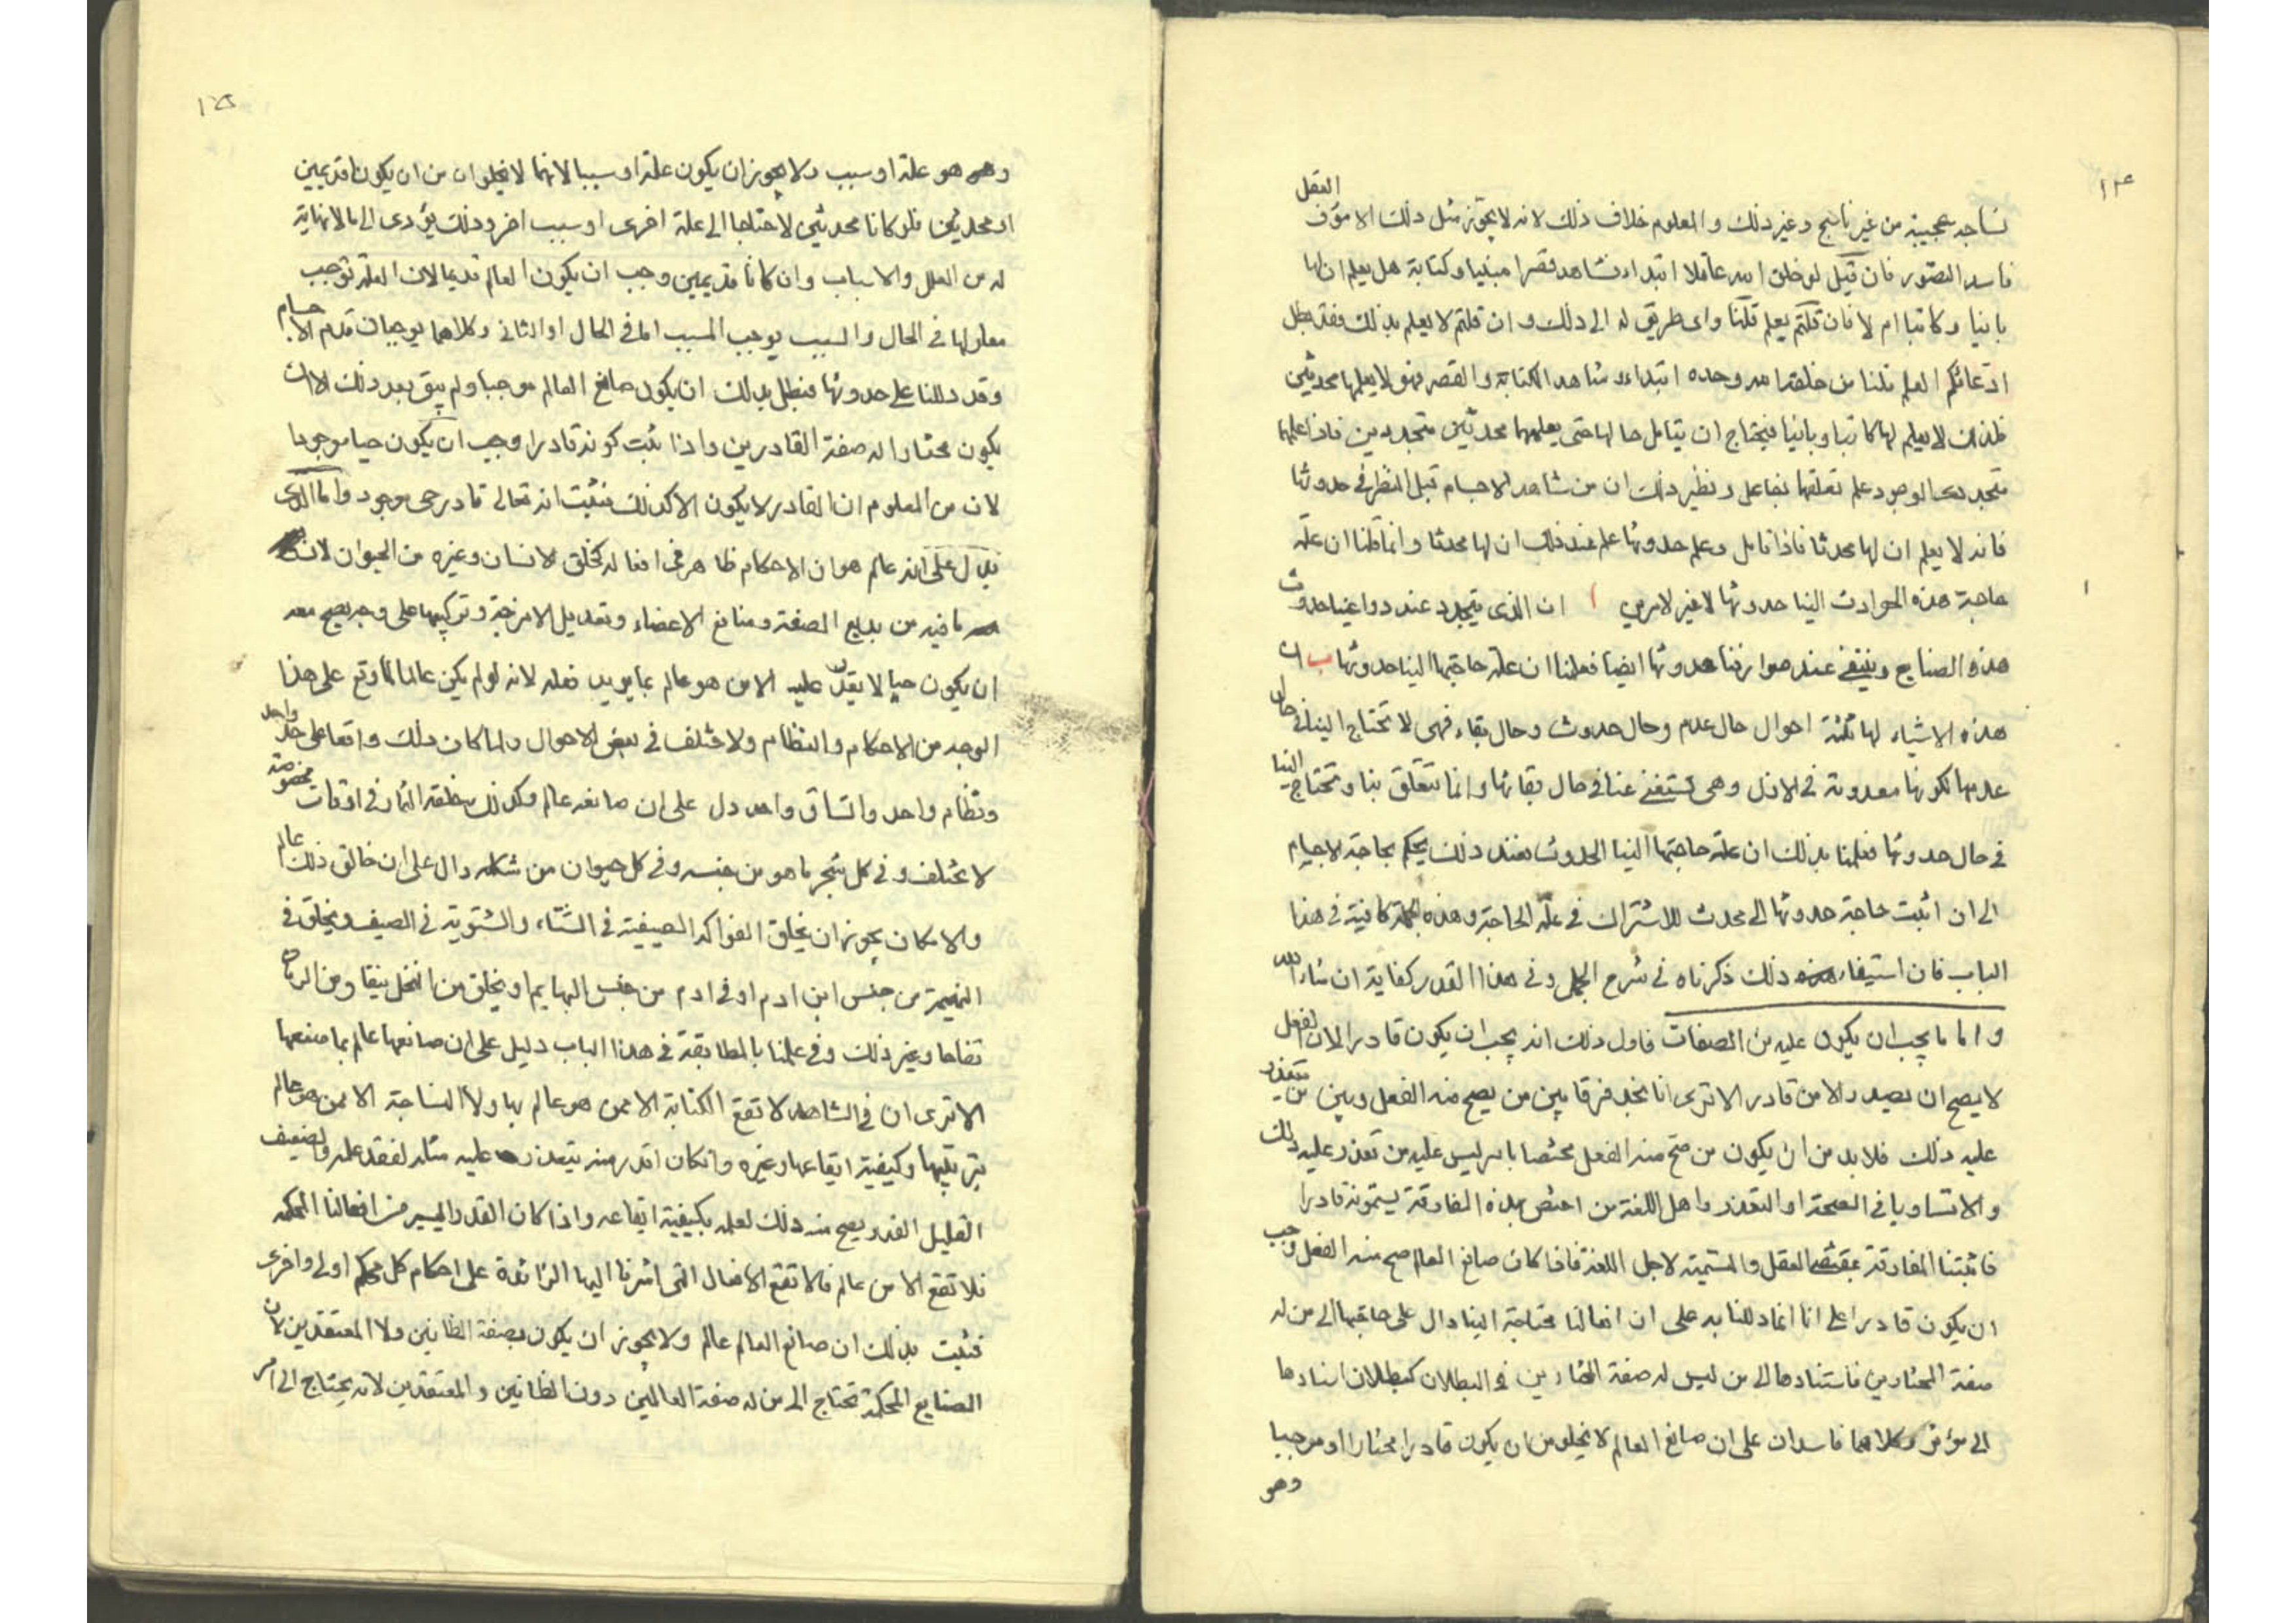 ١٢٤
نساجة عجيبة من غير ناسج وغير ذلك والمعلوم خلاف ذلك لانه لا يجوز مثل ذلك الا مؤف العقل
فاسد التصور فان قيل لو خلق الله عاقلا ابتداء فشاهد قصرا مبنيا وكتابة هل يعلم ان لها
بانيا وكاتبا ام لا فان قلتم يعلم قلنا واى طريق له الى ذلك وان قلتم لا يعلم بذلك فقد بطل
ادعائكم العلم قلنا من خلقه الله وحده ابتداء وشاهد الكتابة والقصر فهو لا يعلمها محدثين
فلذلك لا يعلم لها كاتبا وبانيا فيحتاج ان يتامل حالها حتى يعلمهما محدثين متجددين فاذا علمهما
متجددى الوجود علم تعلقها بفاعل ونظير ذلك ان من شاهد الاجسام قبل النظر فى حدوثها
فانه لا يعلم ان لها محدثا فاذا تامل وعلم حدوثها علم عند ذلك ان لها محدثا وانما قلنا ان علة
حاجة هذه الحوادث الينا حدوثها لا غير لامرين ا ان الذى يتجدد عند دواعينا حدوث
هذه الصنايع وينتفى عند صوارفنا حدوثها ايضا فعلمنا ان علة حاجتها الينا حدوثها ب ان
هذه الاشياء لها ثلثة احوال حال عدم وحال حدوث وحال بقاء فهى لا تحتاج الينا فى حال
عدمها لكونها معدومة فى الازل وهى تستغنى عنا فى حال بقائها وانما تتعلق بنا وتحتاج الينا
فى حال حدوثها فعلمنا بذلك ان علة حاجتها الينا الحدوث فعند ذلك يحكم بحاجة الاجسام
الى ان اثبت حاجة حدوثها الى محدث للاشتراك فى علة الحاجة وهذه الجملة كافية فى هذا
الباب فان استيفاء ذلك ذكرناه فى شرح الجمل وفى هذا القدر كفاية ان شاء الله
واما ما يجب ان يكون عليه من الصفات فاول ذلك انه يجب ان يكون قادرا لان الفعل
لا يصح ان يصدر الا من قادر الا ترى انا نجد فرقا بين من يصح منه الفعل وبين من يتعذر
عليه ذلك فلا بد من ان يكون من صح منه الفعل مختصا بامر ليس عليه من تعذر عليه ذلك
والا تساويا فى الصحة او التعذر واهل اللغة من اختص بهذه المفارقة يسمونه قادرا
فاثبتنا المفارقة بمقتضى العقل والتسمية لاجل اللغة فاذا كان صانع العالم صح منه الفعل وجب
ان يكون قادرا على انا انما دللنا به على ان افعالنا محتاجة الينا دال على حاجتها الى من له
صفة المختارين فاستنادها الى من ليس له صفة المختارين فى البطلان كبطلان اسنادها
الى مؤثر وكلاهما فاسدان على ان صانع العالم لا يخلو من ان يكون قادرا مختارا او موجبا
وهو
١٢٥
وهو علة او سبب ولا يجوز ان يكون علة او سببا لانهما لا يخلوان من ان يكونا قديمين
او محدثين فلو كانا محدثين لاحتاجا الى علة اخرى او سبب اخر وذلك يؤدى الى ما لا نهاية
له من العلل والاسباب وان كانا قديمين وجب ان يكون العالم قديما لان العلة توجب
معلولها فى الحال والسبب يوجب المسبب اما فى الحال او الثانى وكلاهما يوجبان قدم الاجسام
وقد دللنا على حدوثها فبطل بذلك ان يكون صانع العالم موجبا ولم يبق بعد ذلك الا ان
يكون مختارا له صفة القادرين واذا ثبت كونه قادرا وجب ان يكون حيا موجودا
لان من المعلوم ان القادر لا يكون الا كذلك فثبت انه تعالى قادر حى موجود واما الذى
يدل على انه عالم هو ان الاحكام ظاهر فى افعاله كخلق الانسان وغيره من الحيوان لان
ما فيه من بديع الصنعة ومنافع الاعضاء وتعديل الامزجة وتركيبها على وجه يصح معه
ان يكون حيا لا يقدر عليه الا من هو عالم بما يريد فعله لانه لو لم يكن عالما لما وقع على هذا
الوجه من الاحكام والنظام ولاختلف فى بعض الاحوال ولما كان ذلك واقعا على حد واحد
ونظام واحد واتساق واحد دل على ان صانعه عالم وكذلك خلقه الثمار فى اوقات مخصوصة
لا تختلف وفى كل شجر ما هو من جنسه وفى كل حيوان من شكله دال على ان خالق ذلك عالم
والا لكان يجوز ان يخلق الفواكه الصيفية فى الشتاء والشتوية فى الصيف ويخلق فى
البهيمة من جنس ابن ادم او فى ادم من جنس البهايم او يخلق من النخل نبقا ومن الرمان
تفاحا وغير ذلك وفى علمنا بالمطابقة فى هذا الباب دليل على ان صانعها عالم بما صنعها
الا ترى ان فى الشاهد لا تقع الكتابة الا ممن هو عالم بها ولا النساجة الا ممن هو عالم
بترتيبها وكيفية ايقاعها وغيره وان كان اقدر منه يتعذر عليه مثله لفقد علمه والضعيف
القليل القدر يصح منه ذلك لعلمه بكيفية ايقاعه واذا كان القدر اليسير من افعالنا المحكمة
فلا تقع الا من عالم فالا تقع الافعال التى اشرنا اليها الزائدة على احكام كل محكم اولى واحرى
فثبت بذلك ان صانع العالم عالم ولا يجوز ان يكون بصفة الظانين ولا المعتقدين لان
الصنايع المحكمة تحتاج الى من له صفة العالمين دون الظانين والمعتقدين لانه يحتاج الى امر